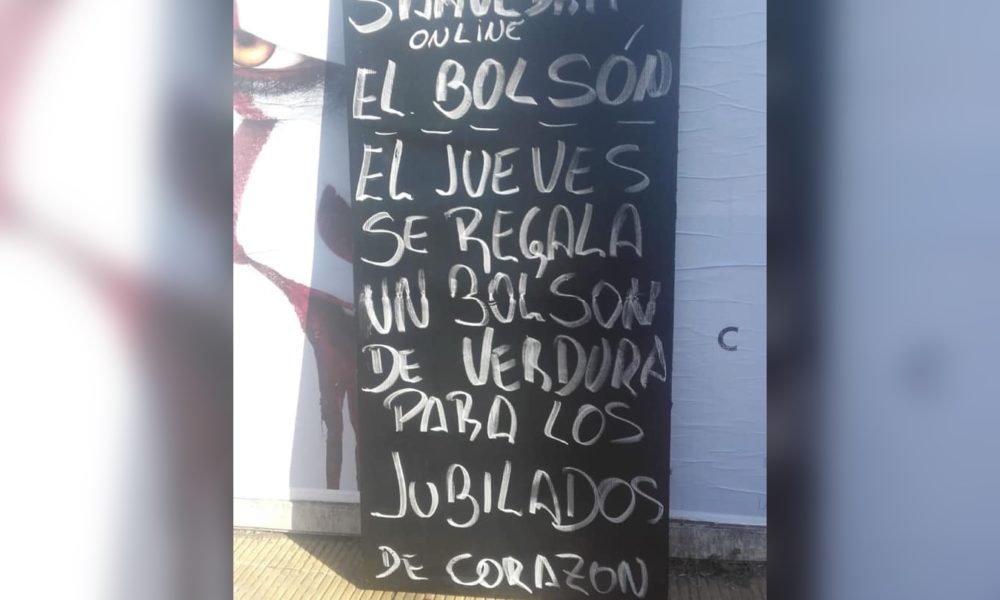 ONLINE
EL BOLSÓN
EL JUEVES
SE REGALA
UN BOLSON
DE VERDURA
PARA LOS
JUBILADOS
DE CORAZON
C